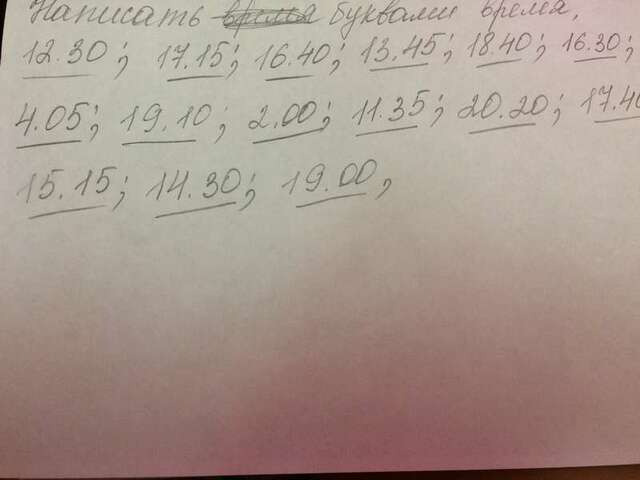 Написать буквами время,
12.30; 17.15; 16.40; 13.45; 18.40; 16.30;
4.05; 19.10; 2.00; 11.35; 20.20; 17.4
15.15; 14.30; 19.00,